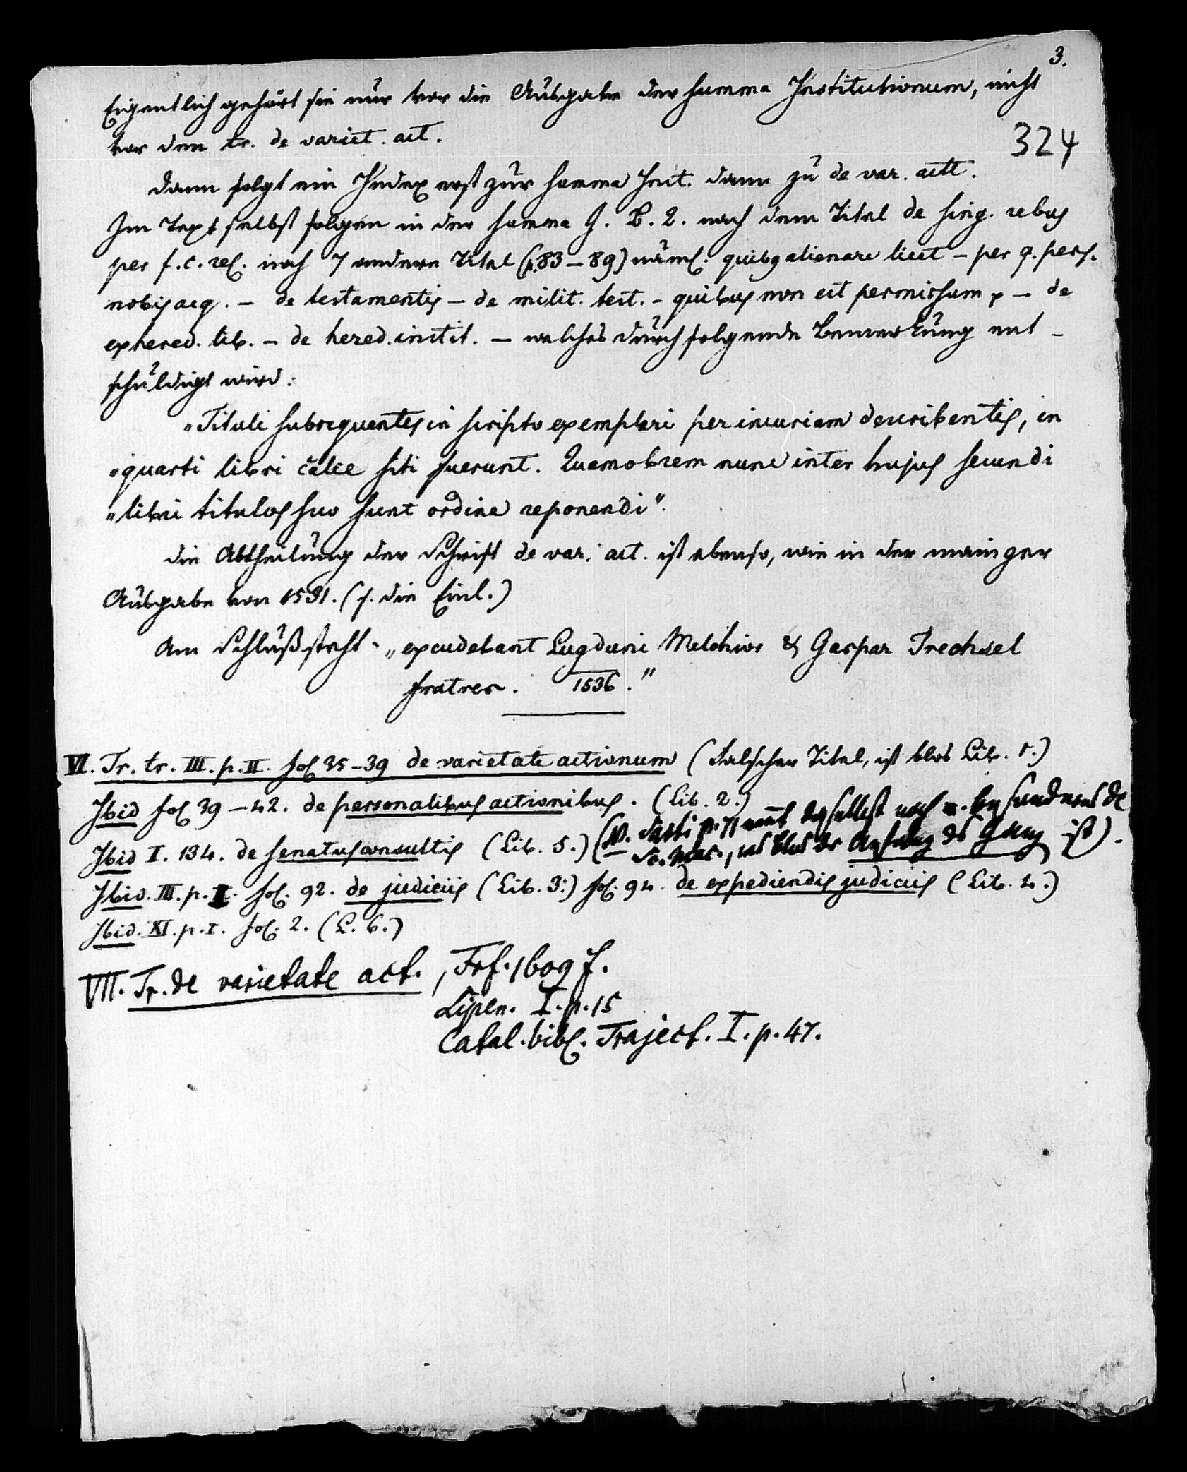 3.
Eigentlich gehört sie nur vor die Ausgabe der Summa Institutionum, nicht
324
vor den tr. de variet. act.
Dann folgt ein Index erst zur Summa Inst. dann zu de var. actt.
Im Text selbst folgen in der Summa J. L. 2. nach dem Titel de sing. rebus
per f. c. rel. noch 7 andere Titel (p. 83 – 89) näml. quibus alienare licet – per q. pers.
nobis acq. – de testamentis – de milit. test. – quibus non est permissum – de
exhered. lib. – de hered. instit. – welches durch folgende Bemerkung ent-
schuldigt wird:
„Tituli subsequentes in scripto exemplari per incuriam describentis, in
„quarti libri calce siti fuerunt. Quamobrem nunc inter hujus secundi
„libri titulos suo sunt ordine reponendi“.
Die Abtheilung der Schrift de var. act. ist ebenso, wie in der mainzer
Ausgabe von 1531. (s. die Einl.)
Am Schluß steht: „excudebant Lugduni Melchior & Gaspar Trechsel
fratres. 1536.“
VI. Tr. tr. III. p. II. fol 35–39 de varietate actionum (falscher Titel, ist blos Lib. 1.)
Ibid fol 39 – 42. de personalibus actionibus. (Lib. 2.)
Ibid I. 134. de senatusconsultis (Lib. 5.) (N. Sarti p. 71 daselbst noch
, blos der Anfang des Ganz ist).
Ibid. III. p. II. fol. 92. de judiciis (Lib. 3.) fol. 94. de expediendis judiciis (Lib. 4.)
Ibid. XI. p. I. fol. 2. (L. 6.)
VII. Tr. de varietate act., Frf. 1609 f.
Lipen. I. p. 15
Catal. bibl. Traject. I. p. 47.